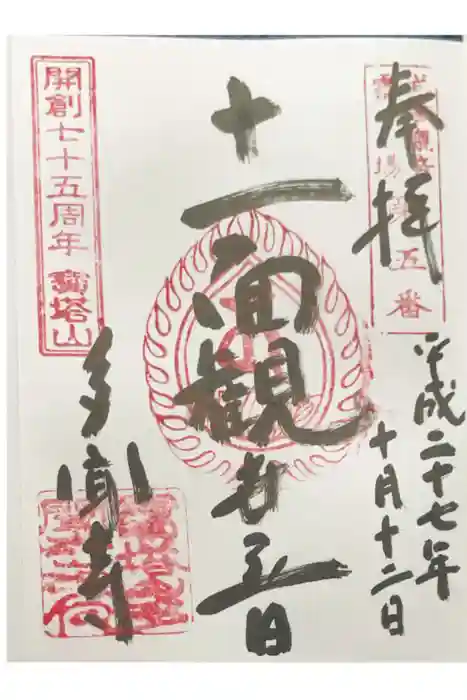 奉拝
五番
平成二十七年
十月十二日
十一面観世音
開創七十五周年 寳塔山
多聞寺